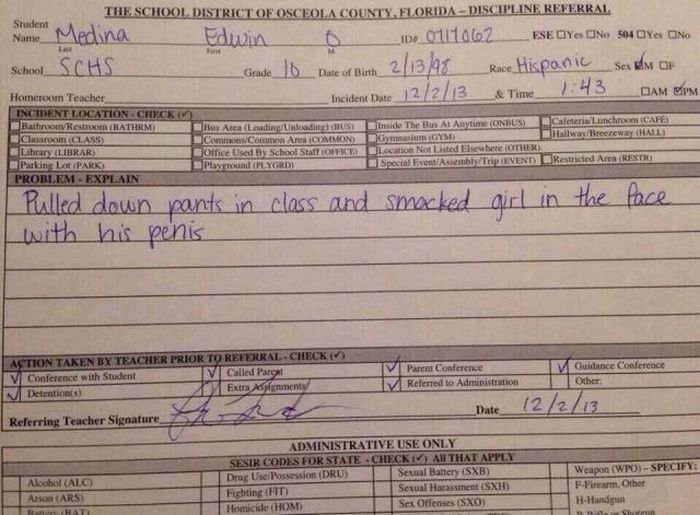 THE SCHOOL DISTRICT OF OSCEOLA COUNTY, FLORIDA – DISCIPLINE REFERRAL
Student
Name Medina Edwin O ID# 0717062 ESE ☐Yes ☐No 504 ☐Yes ☐No
Last First M.
School SCHS Grade 10 Date of Birth 2/13/98 Race Hispanic Sex ☑M ☐F
Homeroom Teacher Incident Date 12/2/13 & Time 1:43 ☐AM ☑PM
INCIDENT LOCATION - CHECK (✓)
☐Bathroom/Restroom (BATHRM) ☐Bus Area (Loading/Unloading) (BUS) ☐Inside The Bus At Anytime (ONBUS) ☐Cafeteria/Lunchroom (CAFE)
☐Classroom (CLASS) ☐Commons/Common Area (COMMON) ☐Gymnasium (GYM) ☐Hallway/Breezeway (HALL)
☐Library (LIBRAR) ☐Office Used By School Staff (OFFICE) ☐Location Not Listed Elsewhere (OTHER)
☐Parking Lot (PARK) ☐Playground (PLYGRD) ☐Special Event/Assembly/Trip (EVENT) ☐Restricted Area (RESTR)
PROBLEM - EXPLAIN
Pulled down pants in class and smacked girl in the face
with his penis
ACTION TAKEN BY TEACHER PRIOR TO REFERRAL - CHECK (✓)
✓ Conference with Student ✓ Called Parent ✓ Parent Conference ✓ Guidance Conference
✓ Detention(s) Extra Assignments ✓ Referred to Administration Other:
Referring Teacher Signature Date 12/2/13
ADMINISTRATIVE USE ONLY
SESIR CODES FOR STATE - CHECK (✓) All THAT APPLY
Alcohol (ALC) Drug Use/Possession (DRU) Sexual Battery (SXB) Weapon (WPO) – SPECIFY:
Arson (ARS) Fighting (FIT) Sexual Harassment (SXH) F-Firearm, Other
Battery (BAT) Homicide (HOM) Sex Offenses (SXO) H-Handgun
R-Rifle or Shotgun